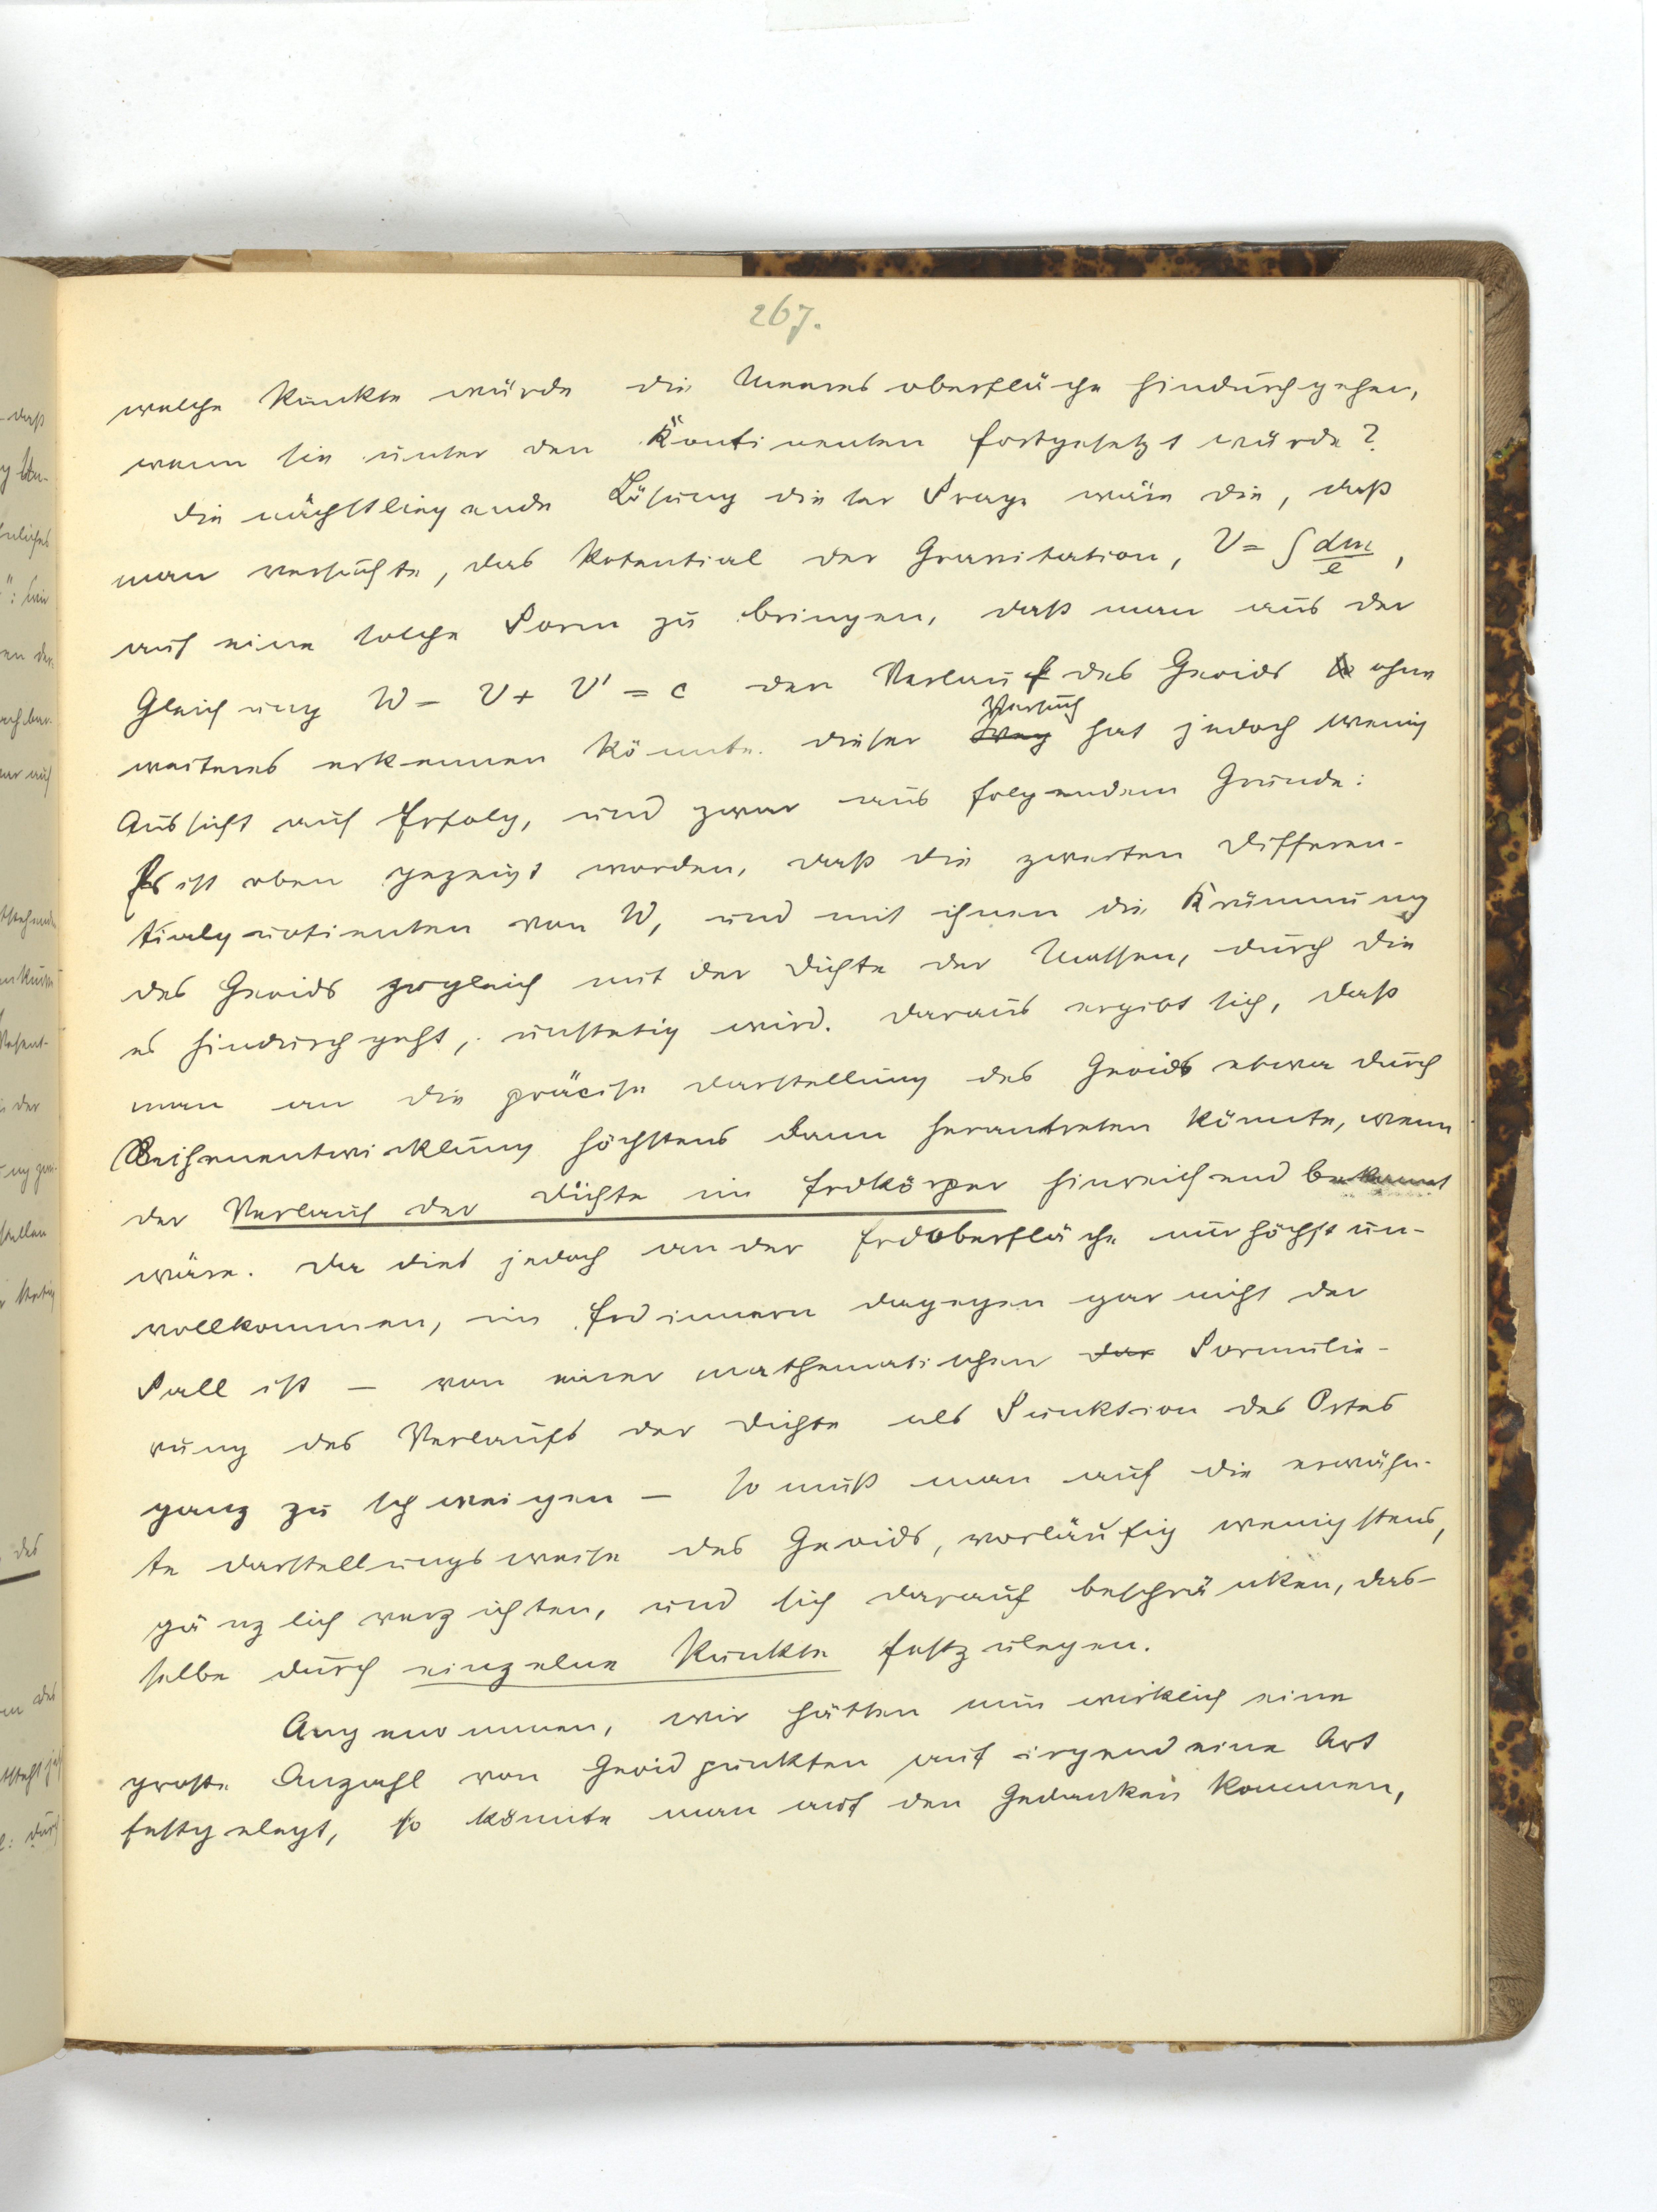 267.
welche Punkte würde die Meeresoberfläche hindurchgehen,
wenn sie unter den Kontinenten fortgesetzt würde?
Die nächstliegende Lösung dieser Frage wäre die, daß
man versuchte, das Potential der Gravitation, V = ∫ dm/e ,
auf eine solche Form zu bringen, daß man aus der
Gleichung W = V + V' = c den Verlauf des Geoids ohne
weiteres erkennen könnte. Dieser Versuch hat jedoch wenig
Aussicht auf Erfolg, und zwar aus folgendem Grunde:
Es ist oben gezeigt worden, daß die zweiten Differen-
tialquotienten von W, und mit ihnen die Krümmung
des Geoids zugleich mit der Dichte der Massen, durch die
es hindurchgeht, unstetig wird. Daraus ergibt sich, daß
man an die präcise Darstellung des Geoids etwa durch
Reihenentwicklung höchstens dann herantreten könnte, wenn
der Verlauf der Dichte im Erdkörper hinreichend bekannt
wäre. Da dies jedoch an der Erdoberfläche nur höchst un-
vollkommen, im Erdinnern dagegen gar nicht der
Fall ist – von einer mathematischen der Formulie-
rung des Verlaufs der Dichte als Funktion des Ortes
ganz zu schweigen – so muß man auf die erwähn-
te Darstellungsweise des Geoids, vorläufig wenigstens,
gänzlich verzichten, und sich darauf beschränken, das-
selbe durch einzelne Punkte festzulegen.
Angenommen, wir hätten nun wirklich eine
große Anzahl von Geoidpunkten auf irgend eine Art
festgelegt, so könnte man auf den Gedanken kommen,